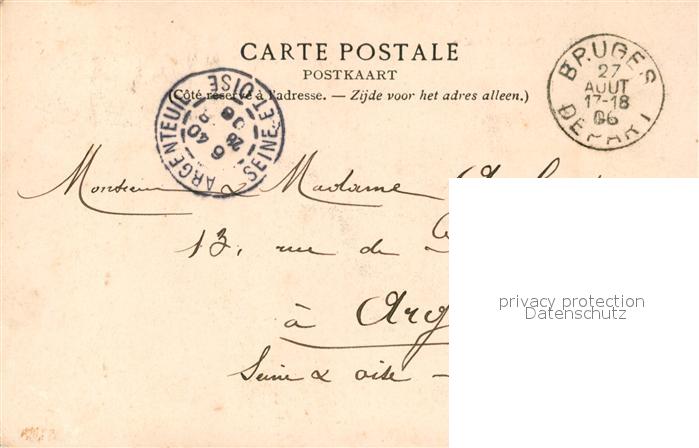 CARTE POSTALE
POSTKAART
(Côté réservé à l'adresse. — Zijde voor het adres alleen.)
BRUGES
27
AOUT
17-18
06
DEPART
ARGENTEUIL
6 40
28
06
SEINE-ET-OISE
Monsieur & Madame
13, rue de
à Arg
Seine & oise –
privacy protection
Datenschutz